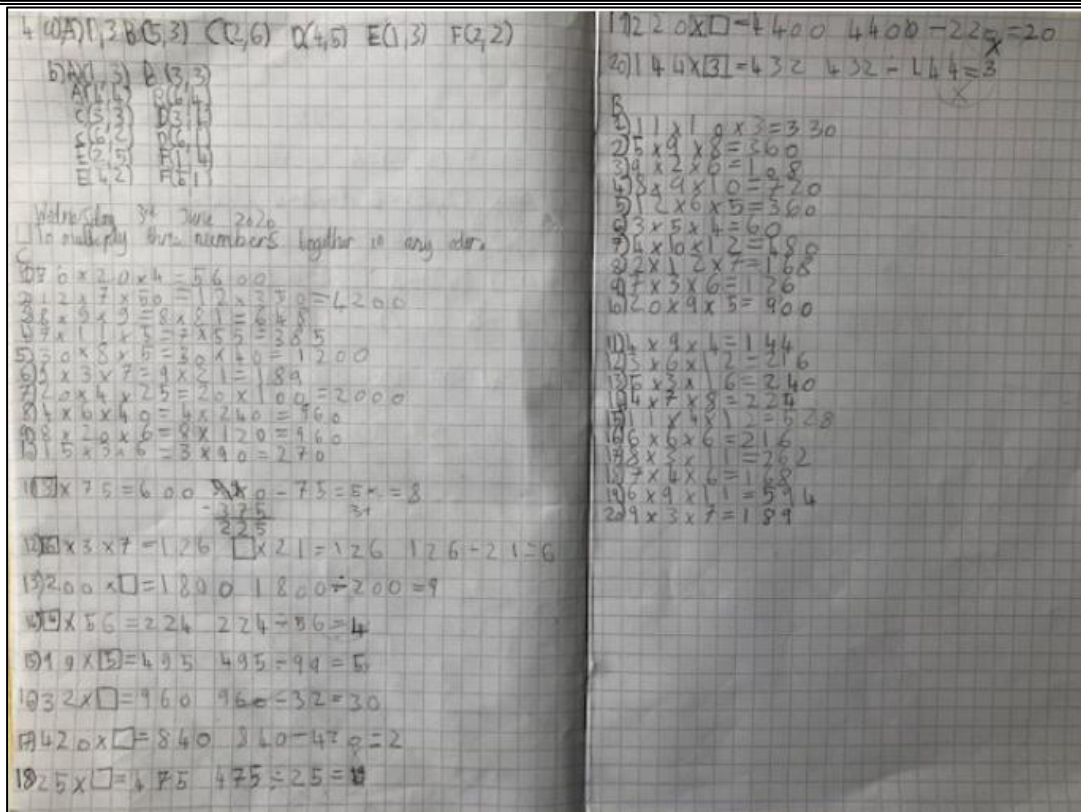 4 a) A) 1,3 B(5,3) C(2,6) D(4,5) E(1,3) F(2,2)
b) A(1,3) B(3,3)
A(1,4) B(6,4)
C(5,3) D(3,1)
C(6,2) D(6,1)
E(2,5) F(1,4)
E(4,2) F(5,1)
Wednesday 3rd June 2020
To multiply three numbers together in any oder.
C
1) 70 x 20 x 4 = 5600
2) 12 x 7 x 50 = 12 x 350 = 4200
3) 8 x 9 x 9 = 8 x 81 = 648
4) 7 x 11 x 5 = 7 x 55 = 385
5) 30 x 8 x 5 = 30 x 40 = 1200
6) 9 x 3 x 7 = 9 x 21 = 189
7) 20 x 4 x 25 = 20 x 100 = 2000
8) 4 x 6 x 40 = 4 x 240 = 960
9) 8 x 20 x 6 = 8 x 120 = 960
10) 15 x 3 x 6 = 3 x 90 = 270
11) 8 x 75 = 600 - 75 = = 8
- 375
225
12) 6 x 3 x 7 = 126 □ x 21 = 126 126 ÷ 21 = 6
13) 200 x □ = 1800 1800 ÷ 200 = 9
14) 4 x 56 = 224 224 ÷ 56 = 4
15) 99 x 5 = 495 495 ÷ 99 = 5
16) 32 x □ = 960 960 ÷ 32 = 30
17) 420 x □ = 840 840 ÷ 420 = 2
18) 25 x □ = 475 475 ÷ 25 =
19) 220 x □ = 4400 4400 ÷ 220 = 20
20) 144 x 3 = 432 432 ÷ 144 = 3
B
1) 11 x 10 x 3 = 330
2) 5 x 9 x 8 = 360
3) 9 x 2 x 6 = 108
4) 8 x 9 x 10 = 720
5) 12 x 6 x 5 = 360
6) 3 x 5 x 4 = 60
7) 4 x 10 x 12 = 480
8) 2 x 12 x 7 = 168
9) 7 x 3 x 6 = 126
10) 20 x 9 x 5 = 900
11) 4 x 9 x 4 = 144
12) 3 x 6 x 12 = 216
13) 5 x 3 x 16 = 240
14) 4 x 7 x 8 = 224
15) 11 x 4 x 12 = 528
16) 6 x 6 x 6 = 216
17) 8 x 3 x 11 = 262
18) 7 x 4 x 6 = 168
19) 6 x 9 x 11 = 594
20) 9 x 3 x 7 = 189